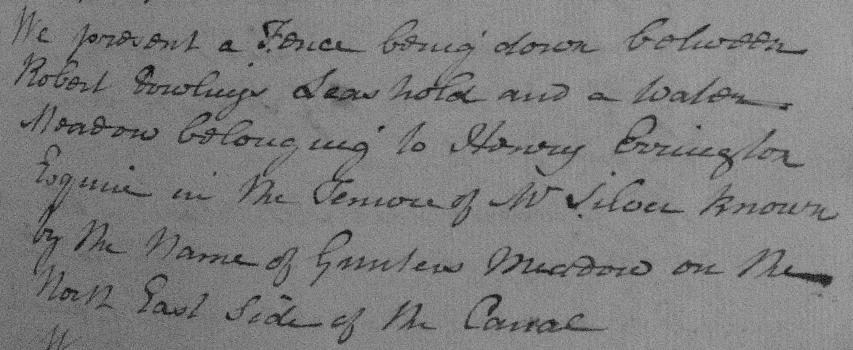 We present a Fence being down between
Robert Dowlings Leashold and a Water
Meadow belonging to Henry Errington
Esquire in the Tenure of Mr Silver known
by the Name of Gunters Meadow on the
North East Side of the Canal
W